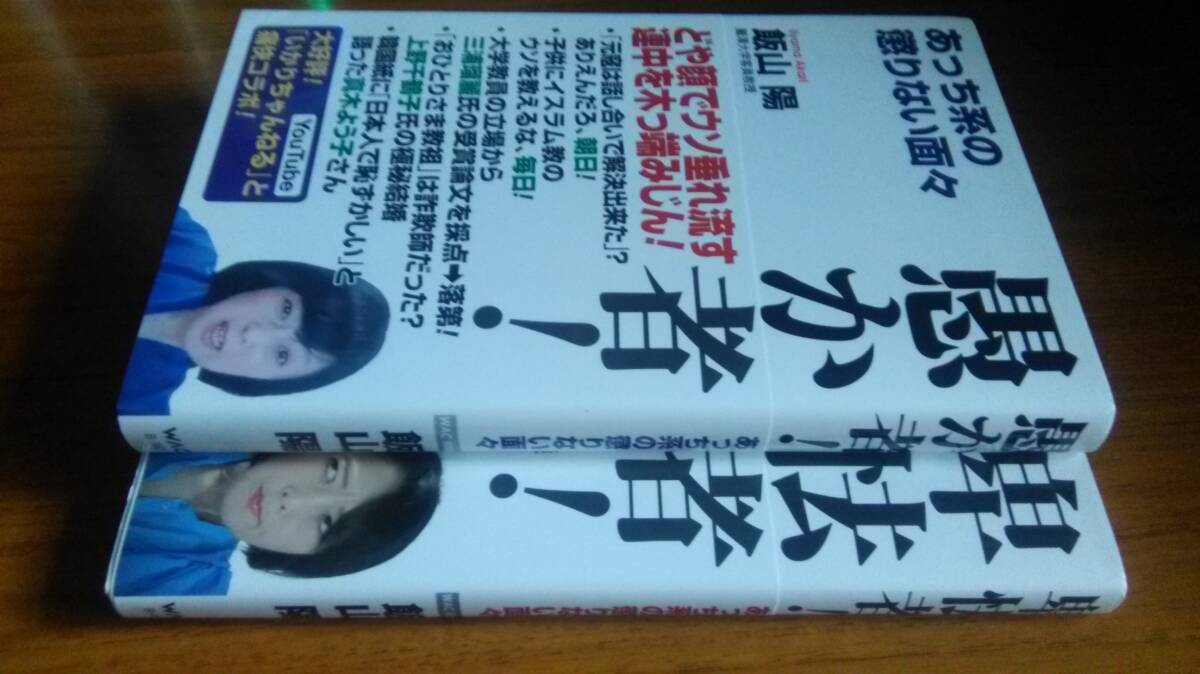 あっち系の
懲りない面々
Iiyama Akari
飯山 陽
麗澤大学客員教授
愚か
者！
どや顔でウソ垂れ流す
連中を木っ端みじん！
・「元寇は話し合いで解決出来た」？
ありえんだろ、朝日！
・子供にイスラム教の
ウソを教えるな、毎日！
・大学教員の立場から
三浦瑠麗氏の受賞論文を採点➡落第！
・「おひとりさま教祖」は詐欺師だった？
上野千鶴子氏の極秘結婚
・韓国紙に「日本人で恥ずかしい」と
語った真木よう子さん
YouTube
大好評！
「いかりちゃんねる」と
痛快コラボ！
愚か者！
あっち系の懲りない面々
飯山 陽
卑怯
者！
卑怯者！
あっち系の懲りない面々
飯山 陽